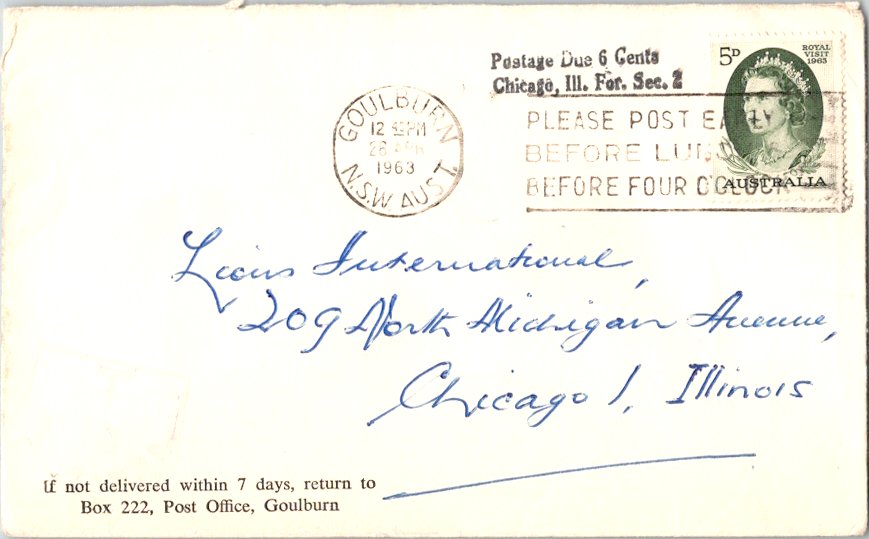 5D
ROYAL
VISIT
1963
AUSTRALIA
Postage Due 6 Cents
Chicago, Ill. For. Sec. 2
GOULBURN
12 PM
1963
N.S.W. AUST.
PLEASE POST EARLY
BEFORE
BEFORE FOUR O'CLOCK
Lions International,
209 North Michigan Avenue,
Chicago 1, Illinois
If not delivered within 7 days, return to
Box 222, Post Office, Goulburn